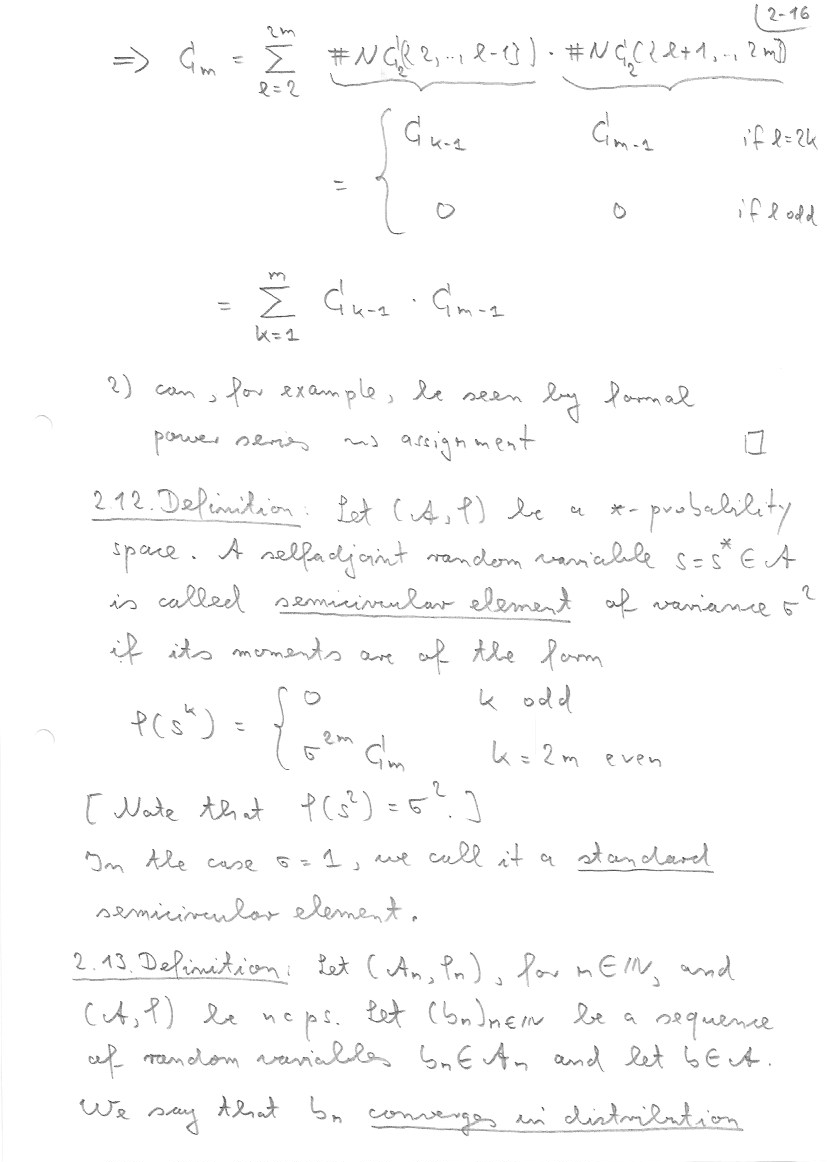 2-16
⇒ C_m = Σ_{l=2}^{2m} #NC_2({2,..,l-1}) · #NC_2({l+1,..,2m})
= { C_{k-1} C_{m-1} if l=2k
0 0 if l odd
= Σ_{k=1}^{m} C_{k-1} · C_{m-1}
2) can, for example, be seen by formal
power series ⇝ assignment □
2.12. Definition: Let (A, φ) be a *-probability
space. A selfadjoint random variable s = s* ∈ A
is called semicircular element of variance σ²
if its moments are of the form
φ(s^k) = { 0 k odd
σ^{2m} C_m k = 2m even
[Note that φ(s²) = σ².]
In the case σ = 1, we call it a standard
semicircular element.
2.13. Definition: Let (A_n, φ_n), for n ∈ ℕ, and
(A, φ) be ncps. Let (b_n)_{n∈ℕ} be a sequence
of random variables b_n ∈ A_n and let b ∈ A.
We say that b_n converges in distribution